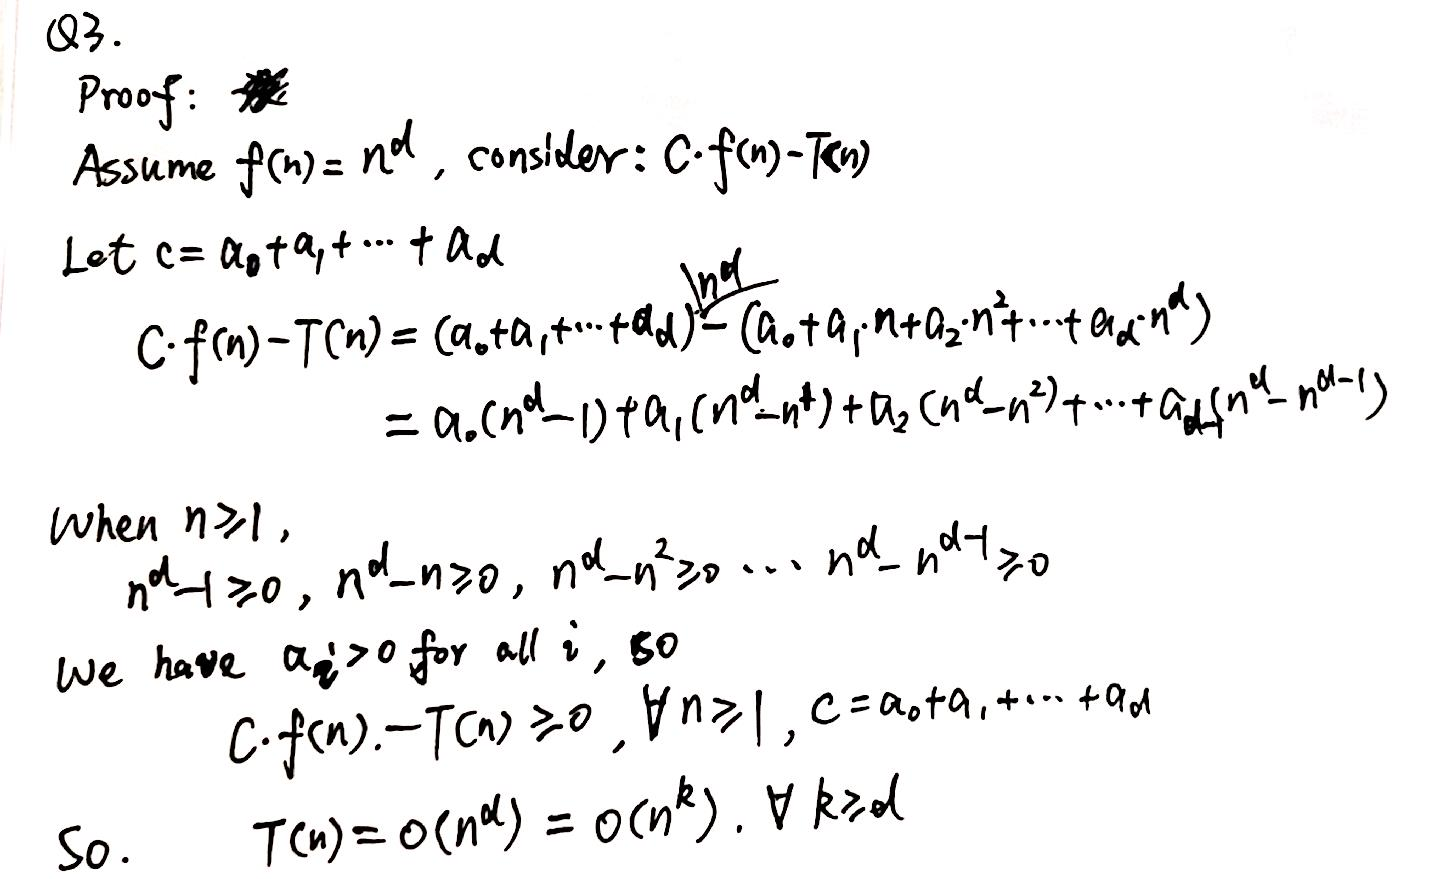 Q3.
Proof:
Assume f(n) = n^d, consider: C·f(n) - T(n)
Let c = a₀+a₁+⋯+a_d
C·f(n) - T(n) = (a₀+a₁+⋯+a_d)n^d - (a₀+a₁·n+a₂·n²+⋯+a_d·n^d)
= a₀(n^d-1)+a₁(n^d-n¹)+a₂(n^d-n²)+⋯+a_{d-1}(n^d-n^{d-1})
When n≥1,
n^d-1≥0, n^d-n≥0, n^d-n²≥0 ⋯ n^d-n^{d-1}≥0
We have a_i>0 for all i, so
C·f(n).-T(n) ≥0, ∀n≥1, c=a₀+a₁+⋯+a_d
So. T(n)=O(n^d) = O(n^k). ∀ k≥d